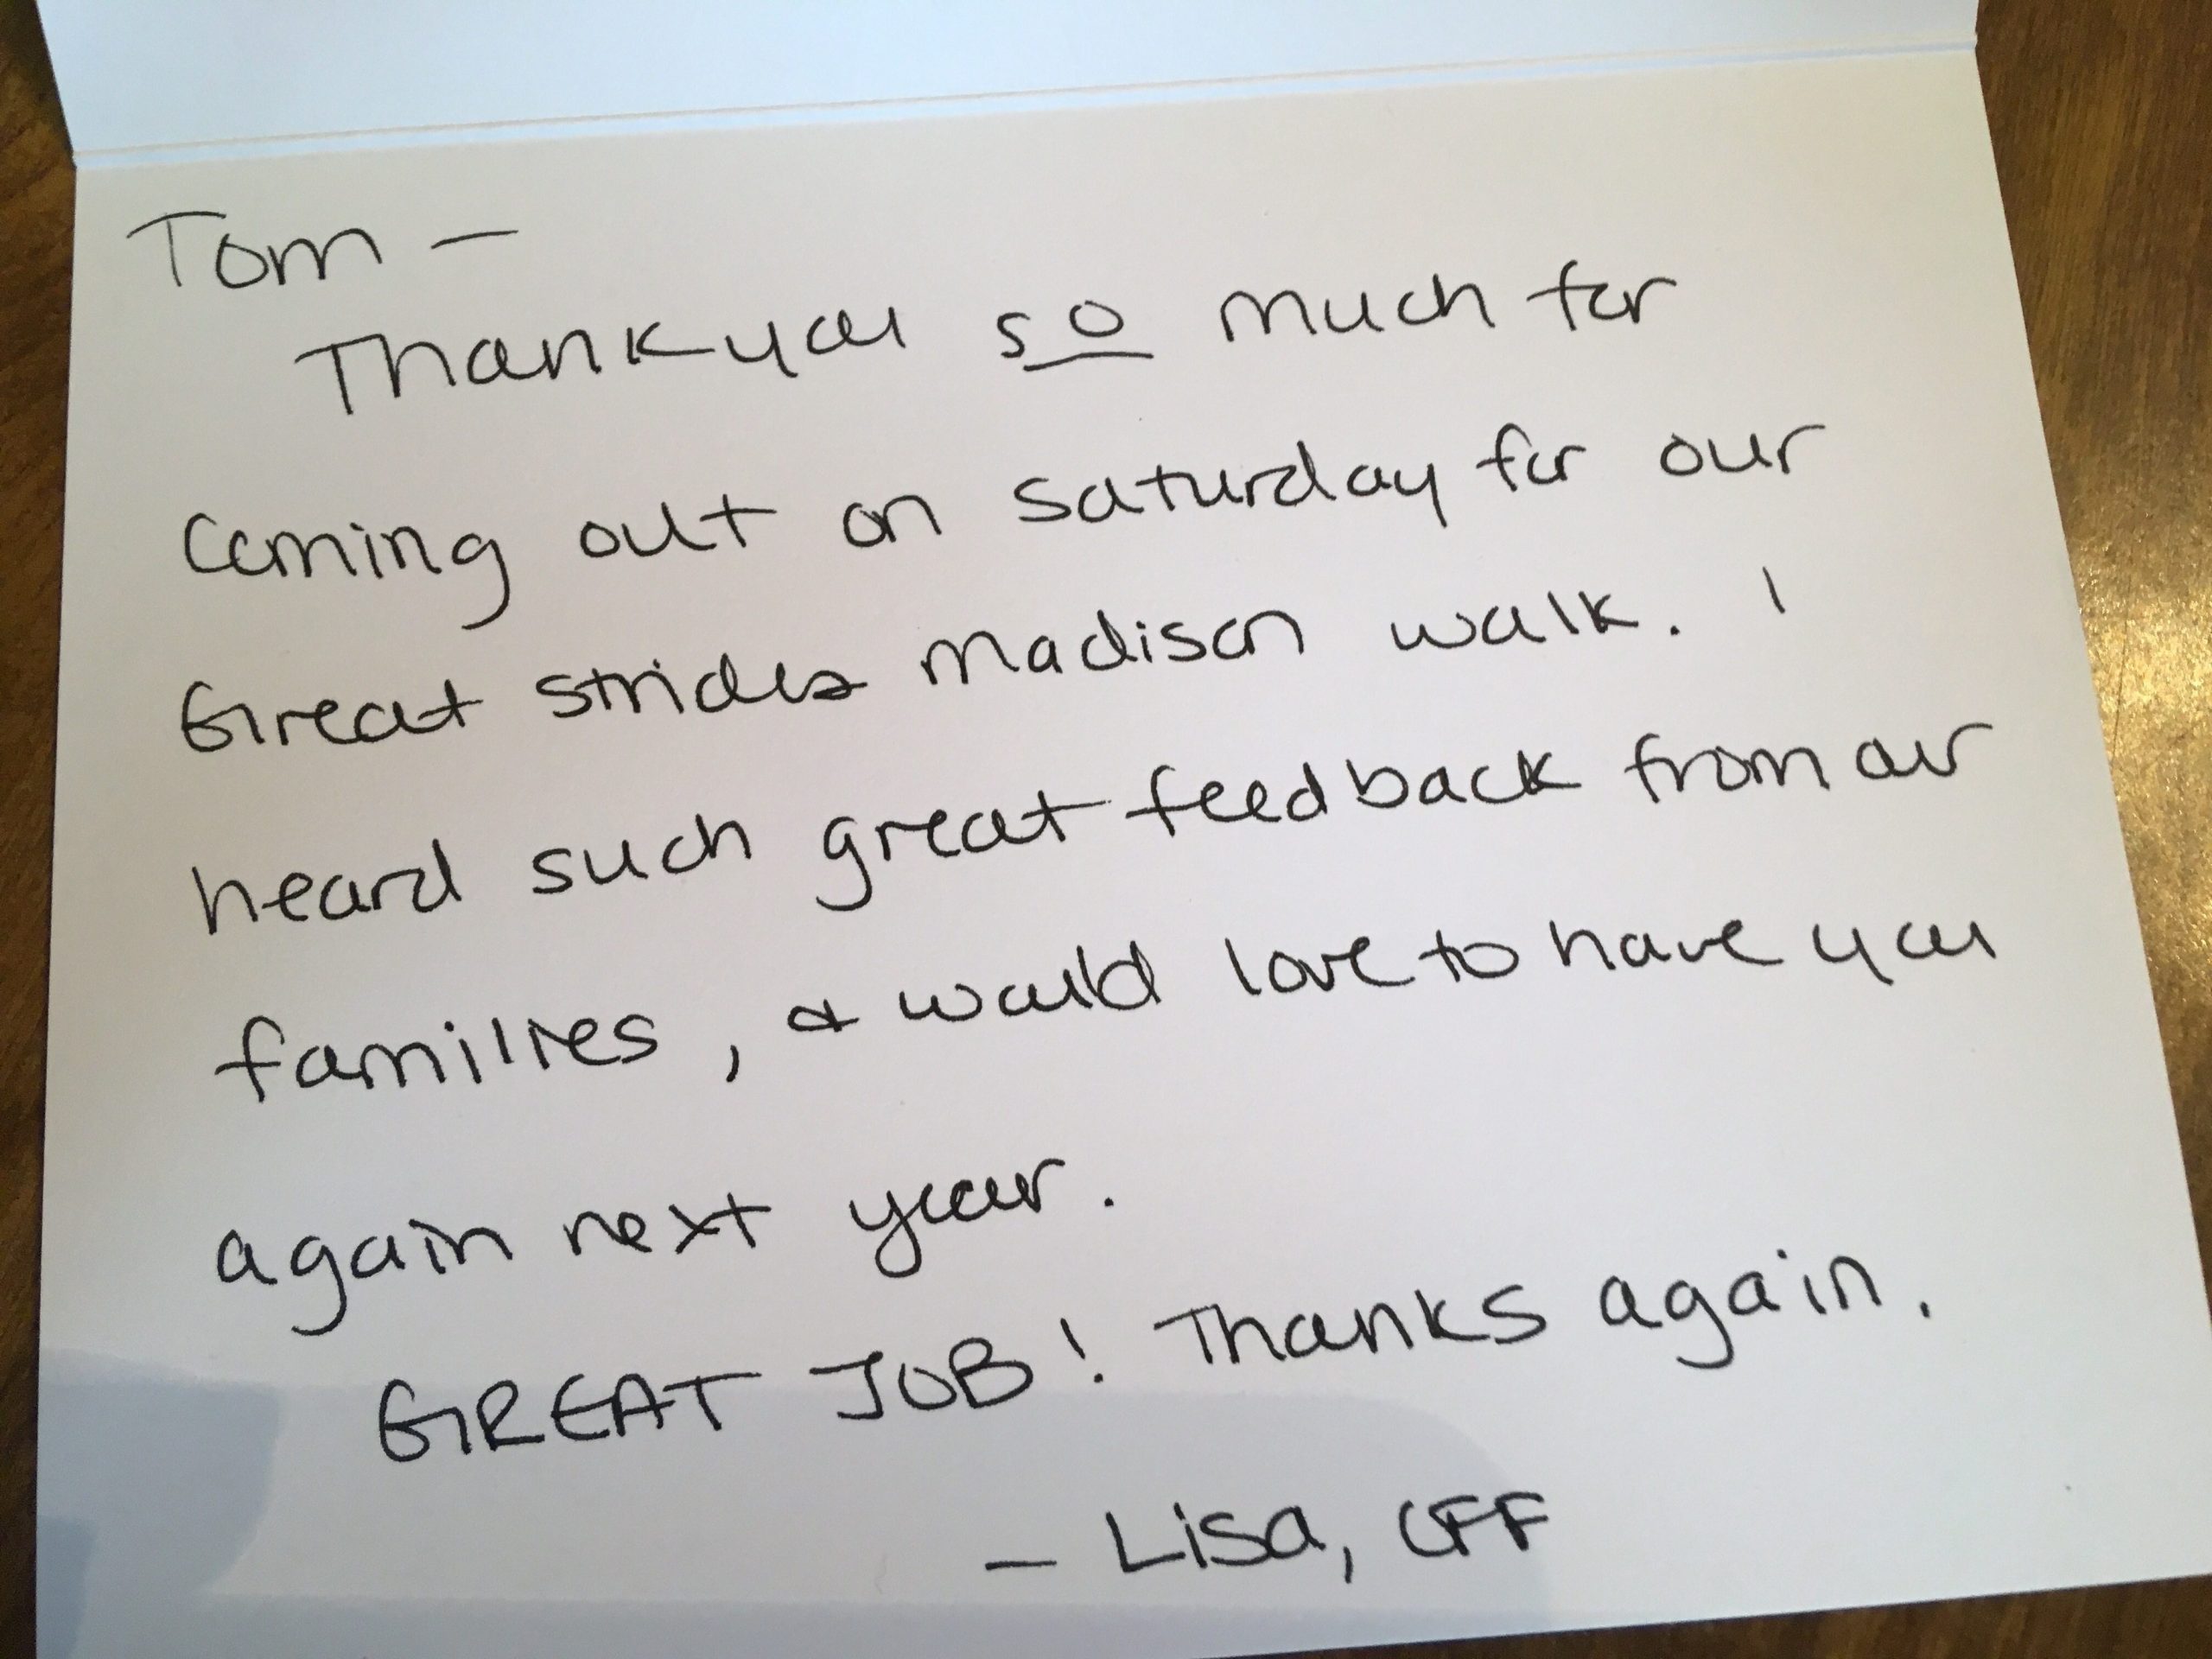 Tom —
Thank you so much for
coming out on Saturday for our
Great Strides Madison walk. I
heard such great feedback from our
families, & would love to have you
again next year.
GREAT JOB! Thanks again.
— Lisa, CFF